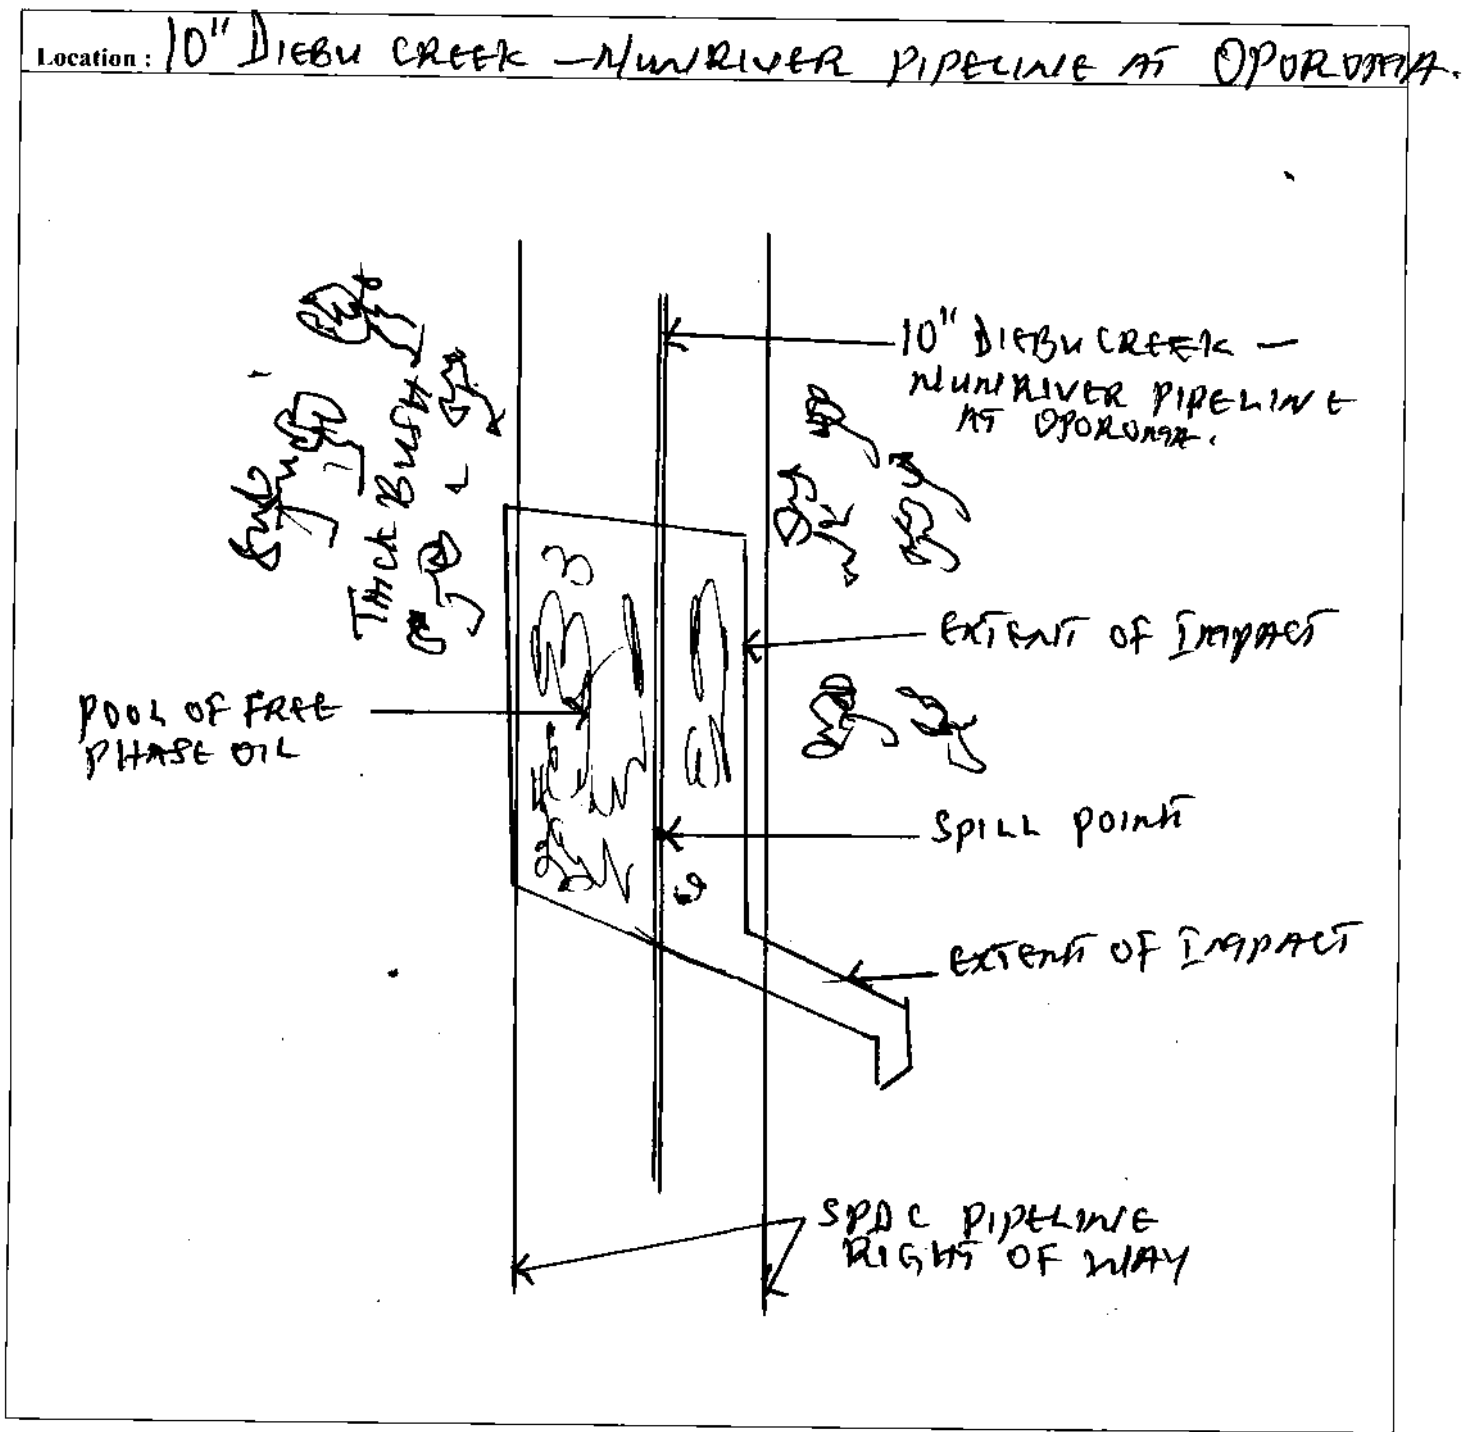 Location : 10" DIEBU CREEK – NUNRIVER PIPELINE AT OPOROMA.
10" DIEBU CREEK –
NUNRIVER PIPELINE
AT OPOROMA.
THICK BUSH
EXTENT OF IMPACT
POOL OF FREE
PHASE OIL
SPILL POINT
EXTENT OF IMPACT
SPDC PIPELINE
RIGHT OF WAY